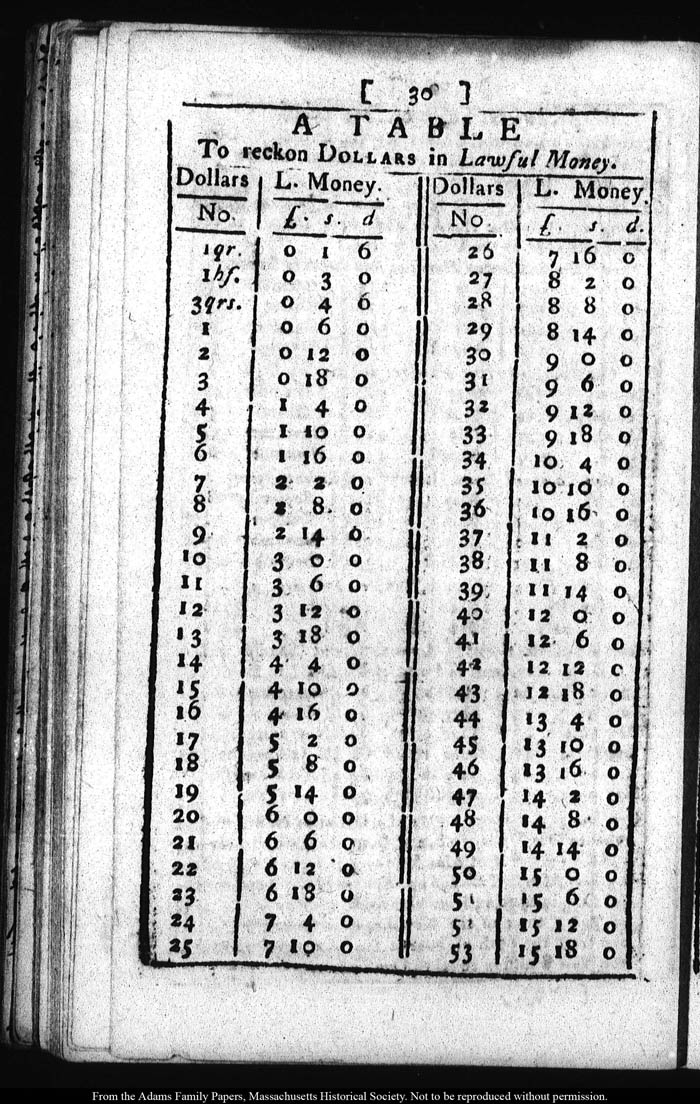 [ 30 ]
A TABLE
To reckon DOLLARS in Lawful Money.
Dollars L. Money. Dollars L. Money.
No. £. s. d No. £. s. d.
1qr. 0 1 6 26 7 16 0
1hf. 0 3 0 27 8 2 0
3qrs. 0 4 6 28 8 8 0
1 0 6 0 29 8 14 0
2 0 12 0 30 9 0 0
3 0 18 0 31 9 6 0
4 1 4 0 32 9 12 0
5 1 10 0 33 9 18 0
6 1 16 0 34 10 4 0
7 2 2 0 35 10 10 0
8 2 8 0 36 10 16 0
9 2 14 0 37 11 2 0
10 3 0 0 38 11 8 0
11 3 6 0 39 11 14 0
12 3 12 0 40 12 0 0
13 3 18 0 41 12 6 0
14 4 4 0 42 12 12 0
15 4 10 0 43 12 18 0
16 4 16 0 44 13 4 0
17 5 2 0 45 13 10 0
18 5 8 0 46 13 16 0
19 5 14 0 47 14 2 0
20 6 0 0 48 14 8 0
21 6 6 0 49 14 14 0
22 6 12 0 50 15 0 0
23 6 18 0 51 15 6 0
24 7 4 0 15 12 0
25 7 10 0 53 15 18 0
From the Adams Family Papers, Massachusetts Historical Society. Not to be reproduced without permission.